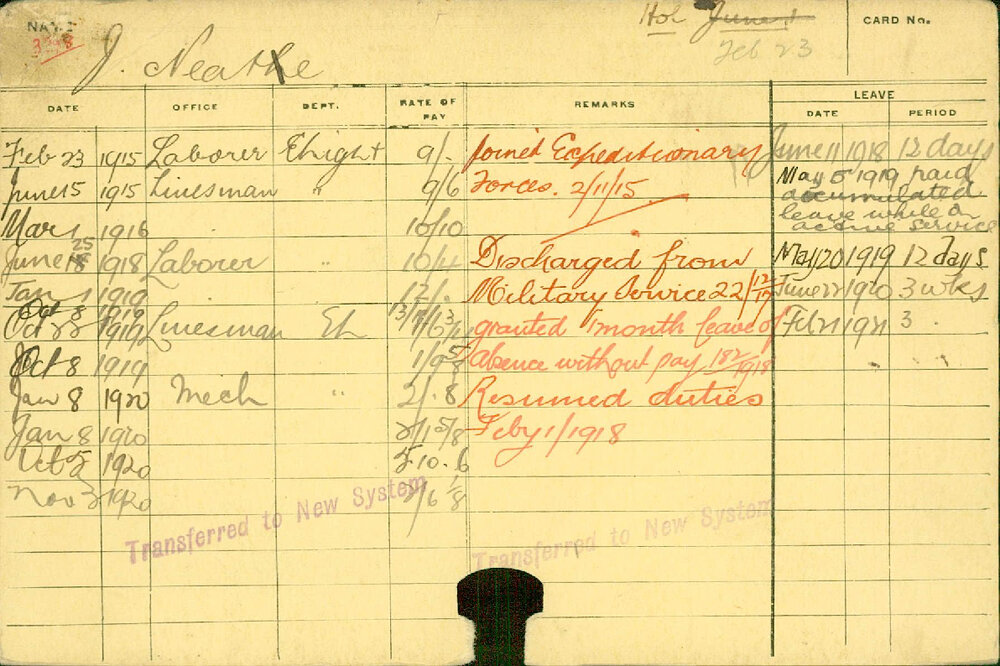 NAME
Hol June 1
CARD No.
Feb 23
J. Neathe
DATE OFFICE DEPT. RATE OF PAY REMARKS LEAVE
DATE PERIOD
Feb 23 1915 Laborer Ehlight 9/- Joined Expeditionary June 11 1918 12 days
June 15 1915 Linesman " 9/6 Forces. 2/11/15. May 5 1919 paid
accumulated
leave while on
active service
Mar 1 1916 10/10
25
June 18 1918 Laborer " 10/4 Discharged from May 20 1919 12 days
Jan 1 1919 12/- Military Service 22/12/17 June 22 1920 3 wks
Oct 8 1919
Oct 22 1919 Linesman El granted 1 month leave of Feb 21 1921 3
Oct 8 1919 absence without pay 18/2/1918
Jan 8 1920 Mech " 2/.8 Resumed duties
Jan 8 1920 Feby 1/1918
Oct 5 1920 5.10.6
Nov 3 1920
Transferred to New System
Transferred to New System